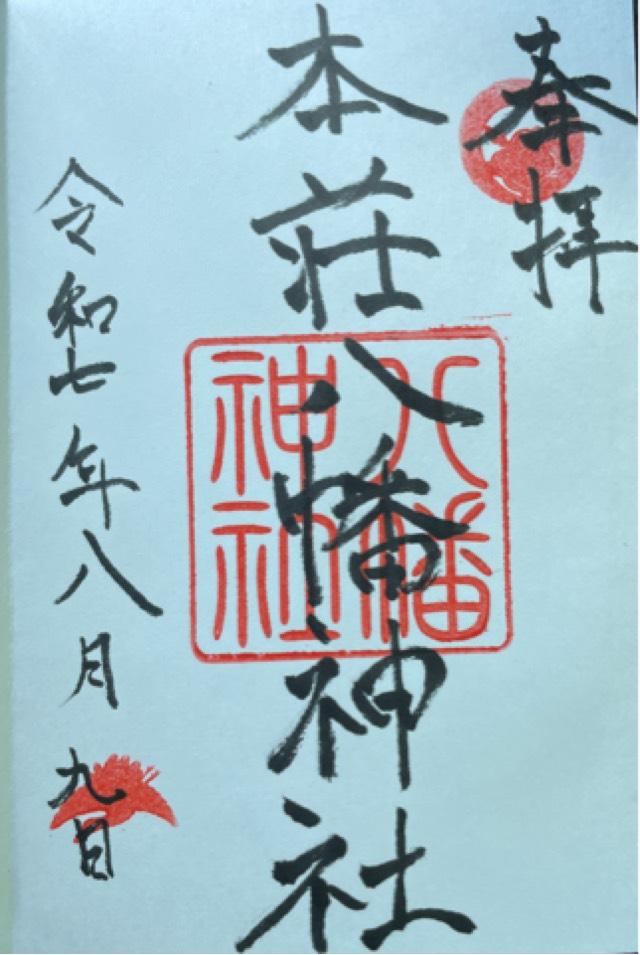 奉拝
本荘八幡神社
八幡
神社
令和七年八月九日